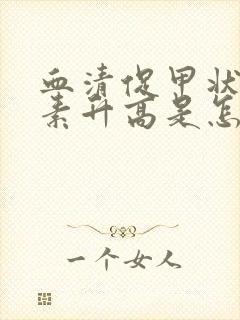 血清促甲状
素升高是怎
一个女人